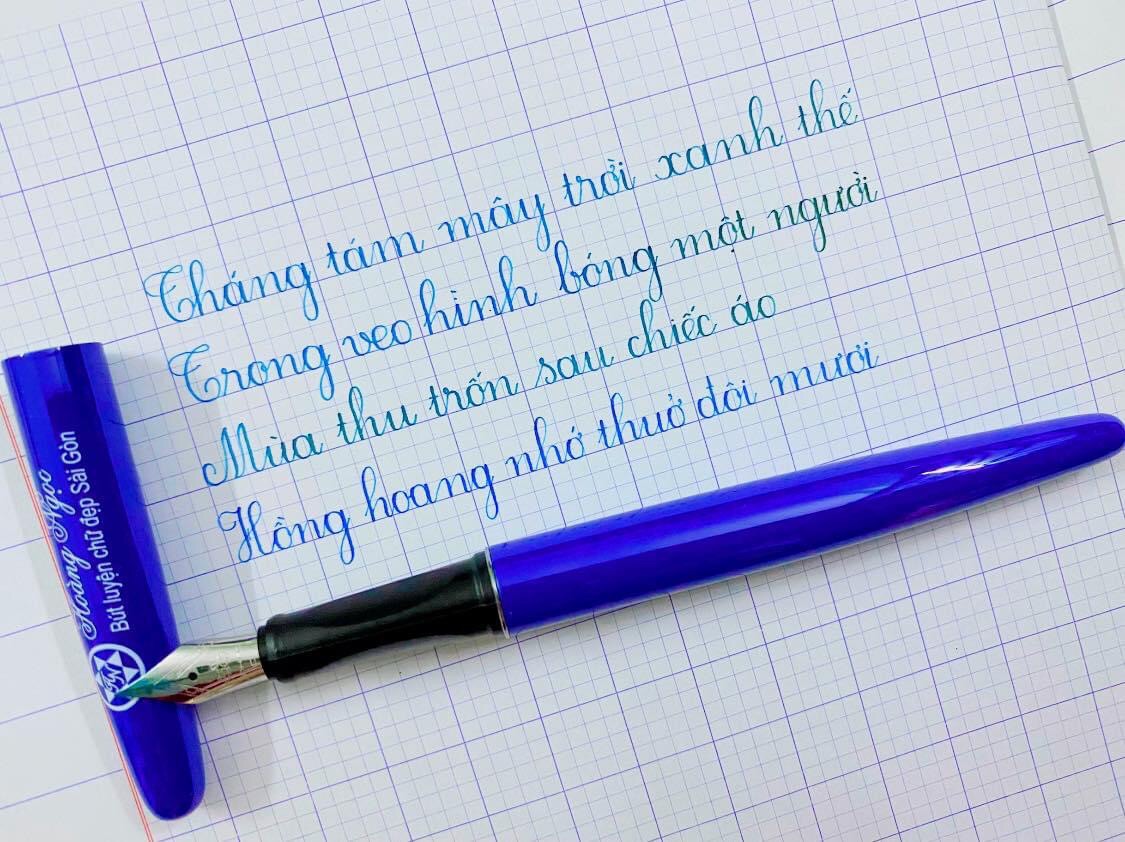 Tháng tám mây trời xanh thế
Trong veo hình bóng một người
Mùa thu trốn sau chiếc áo
Hồng hoang nhớ thuở đôi mươi
Hoàng Ngọc
Bút luyện chữ đẹp Sài Gòn